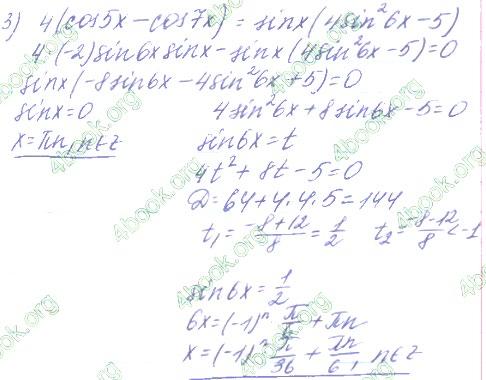 3) 4(cos5x - cos7x) = sinx(4sin²6x - 5)
4·(-2)sin6x sinx - sinx(4sin²6x - 5) = 0
sinx(-8sin6x - 4sin²6x + 5) = 0
sinx = 0    4sin²6x + 8sin6x - 5 = 0
x = πn, n∈z    sin6x = t
4t² + 8t - 5 = 0
D = 64 + 4·4·5 = 144
t₁ = (-8+12)/8 = 1/2    t₂ = (-8-12)/8 < -1
sin6x = 1/2
6x = (-1)ⁿ π/6 + πn
x = (-1)ⁿ π/36 + πn/6, n∈z
4book.org
4book.org
4book.org
4book.org
4book.org
4book.org